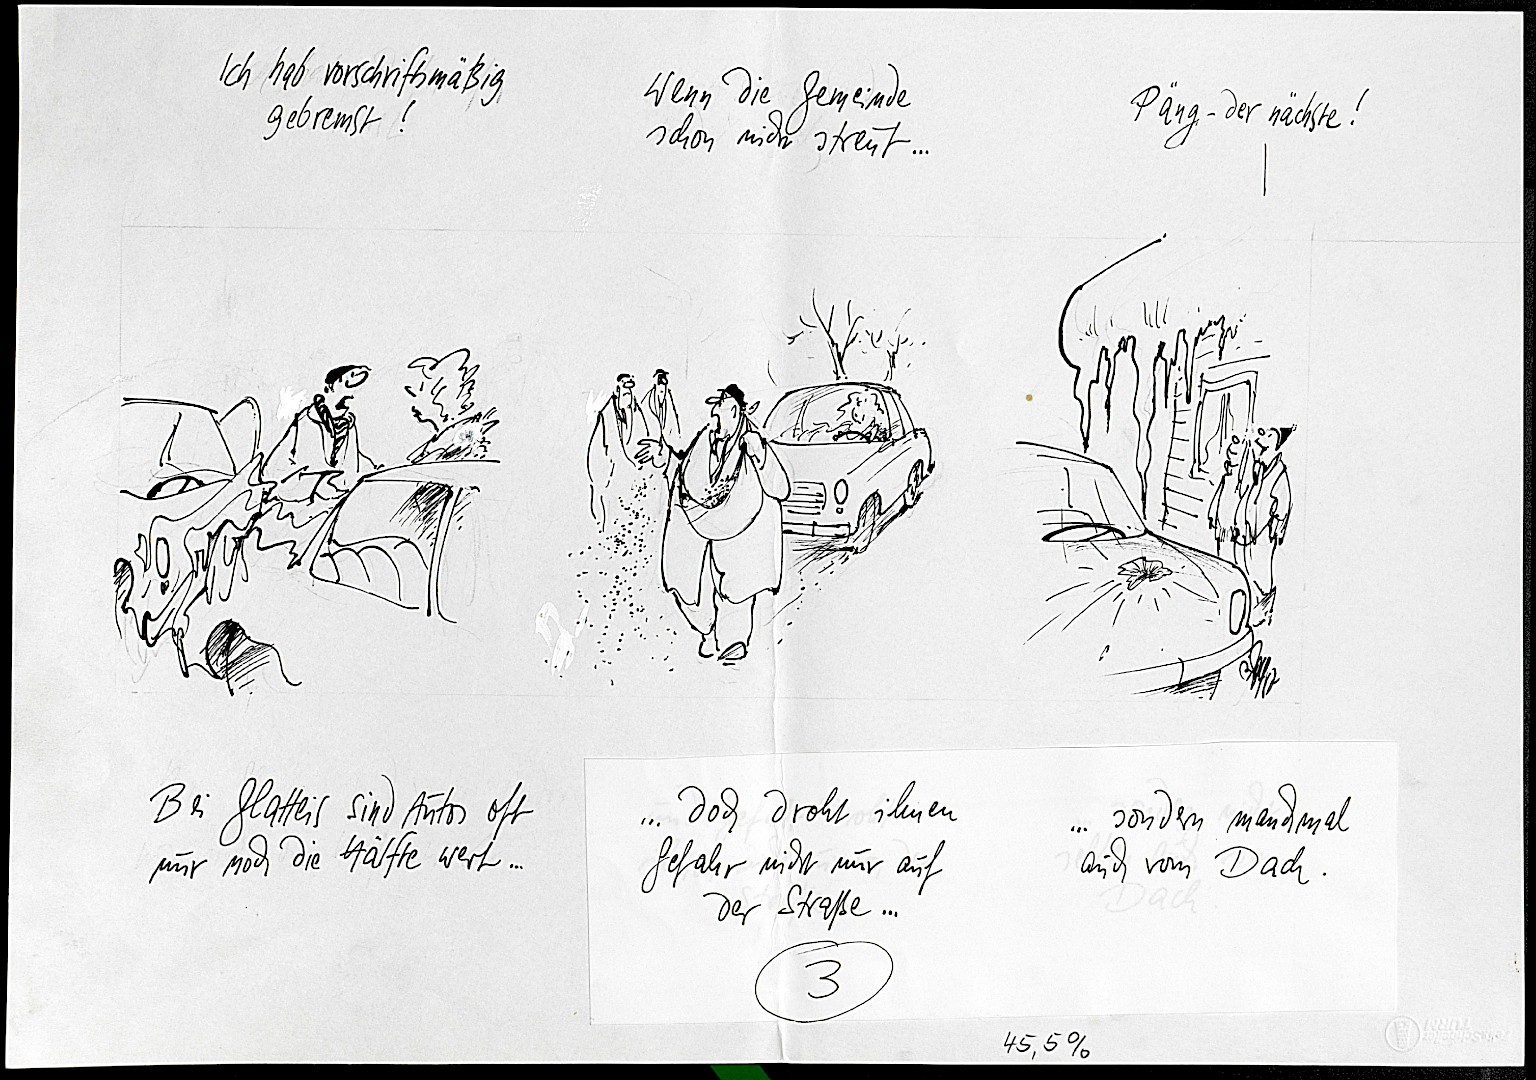 Ich hab vorschriftsmäßig
gebremst !
Wenn die Gemeinde
schon nicht streut...
Päng - der nächste !
Bei Glatteis sind Autos oft
nur noch die Hälfte wert...
... doch droht ihnen
Gefahr nicht nur auf
der Straße...
... sondern manchmal
auch vom Dach.
3
45,5%